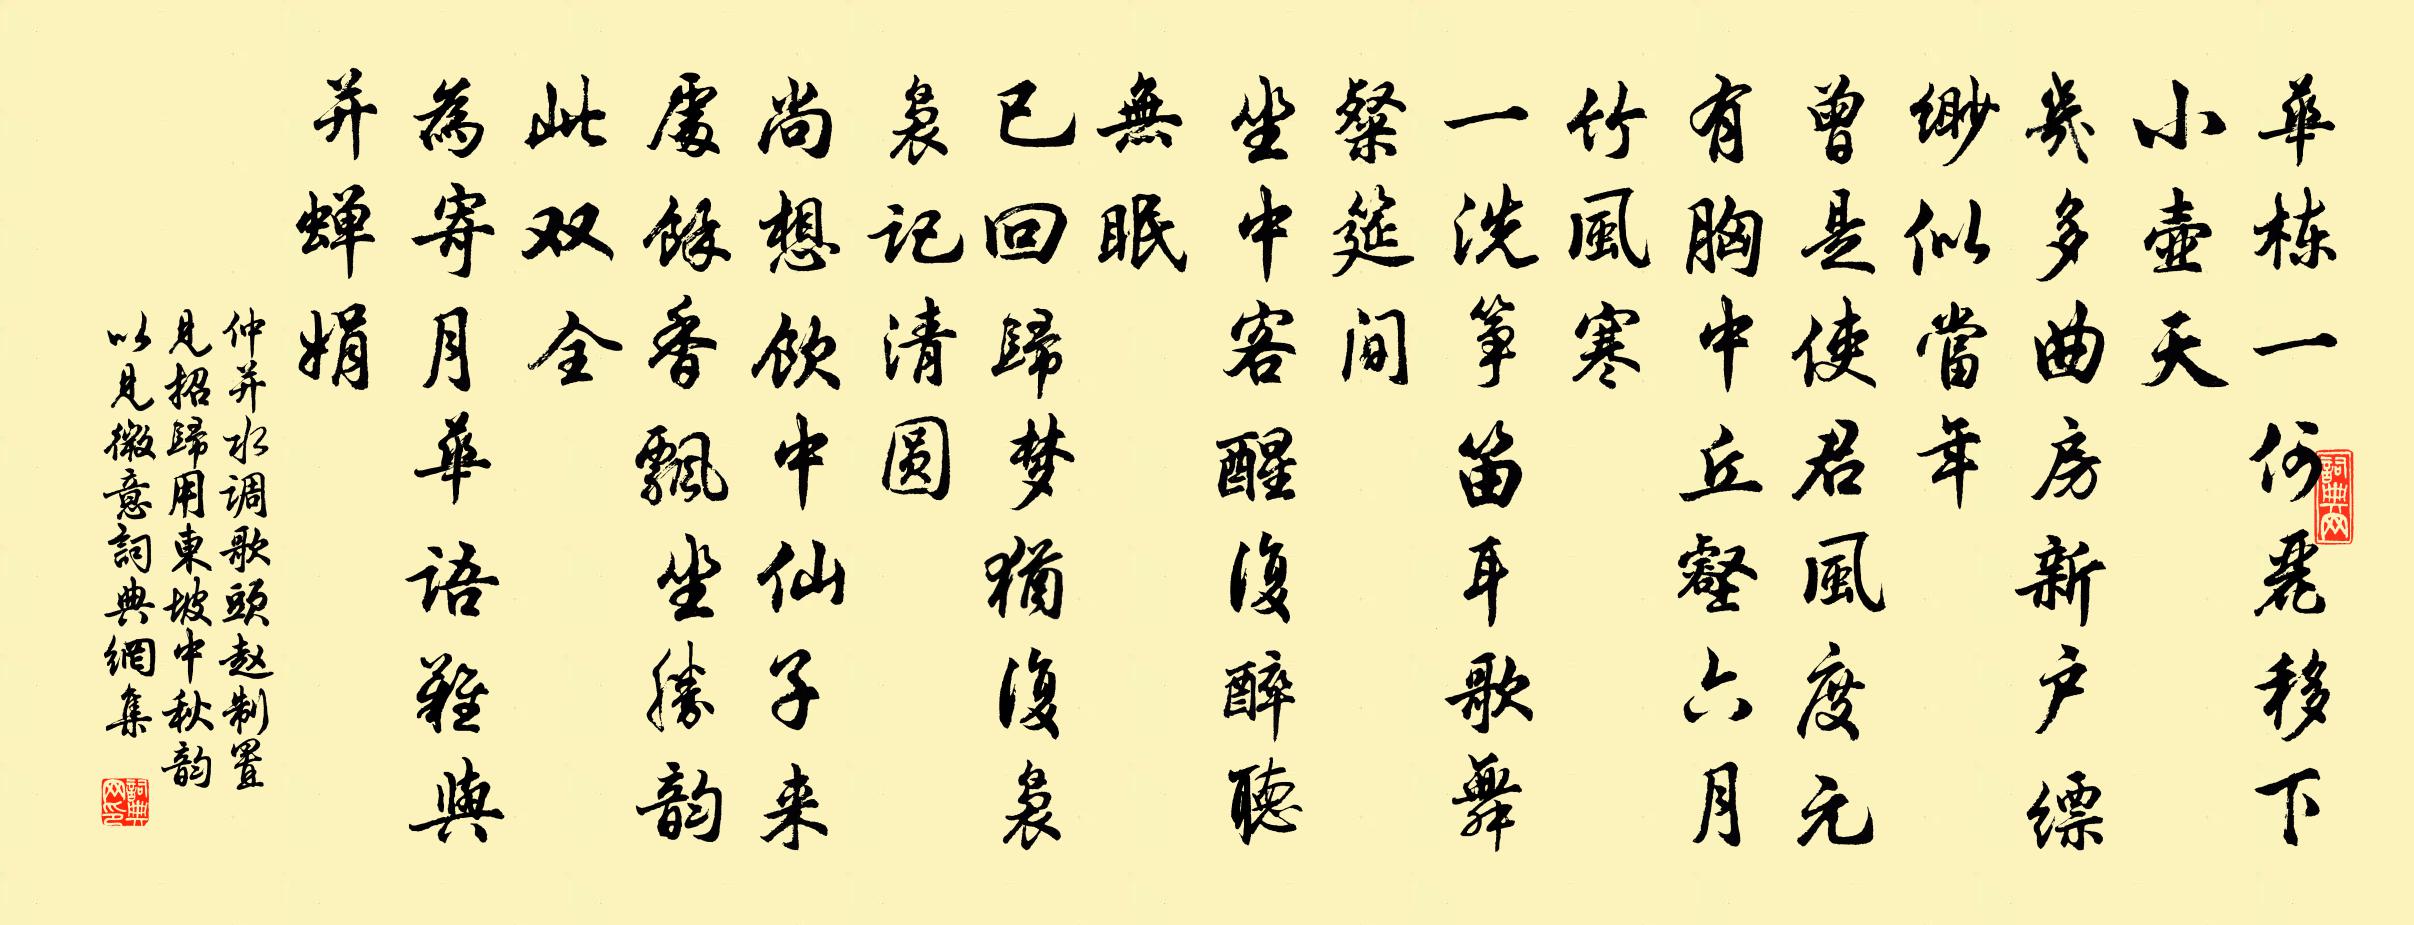 華栋一何麗移下
小壺天
幾多曲房新户缥
缈似當年
曾是使君風度元
有胸中丘壑六月
竹風寒
一洗筝笛耳歌舞
粲筵间
坐中客醒復醉聽
無眠
已回歸梦猶復裊
裊记清圆
尚想飲中仙子来
處餘香飄坐勝韵
此双全
為寄月華语難與
并蝉娟
仲并水调歌頭赵制置
見招歸用東坡中秋韵
以見微意詞典網集
詞典网
詞典网印